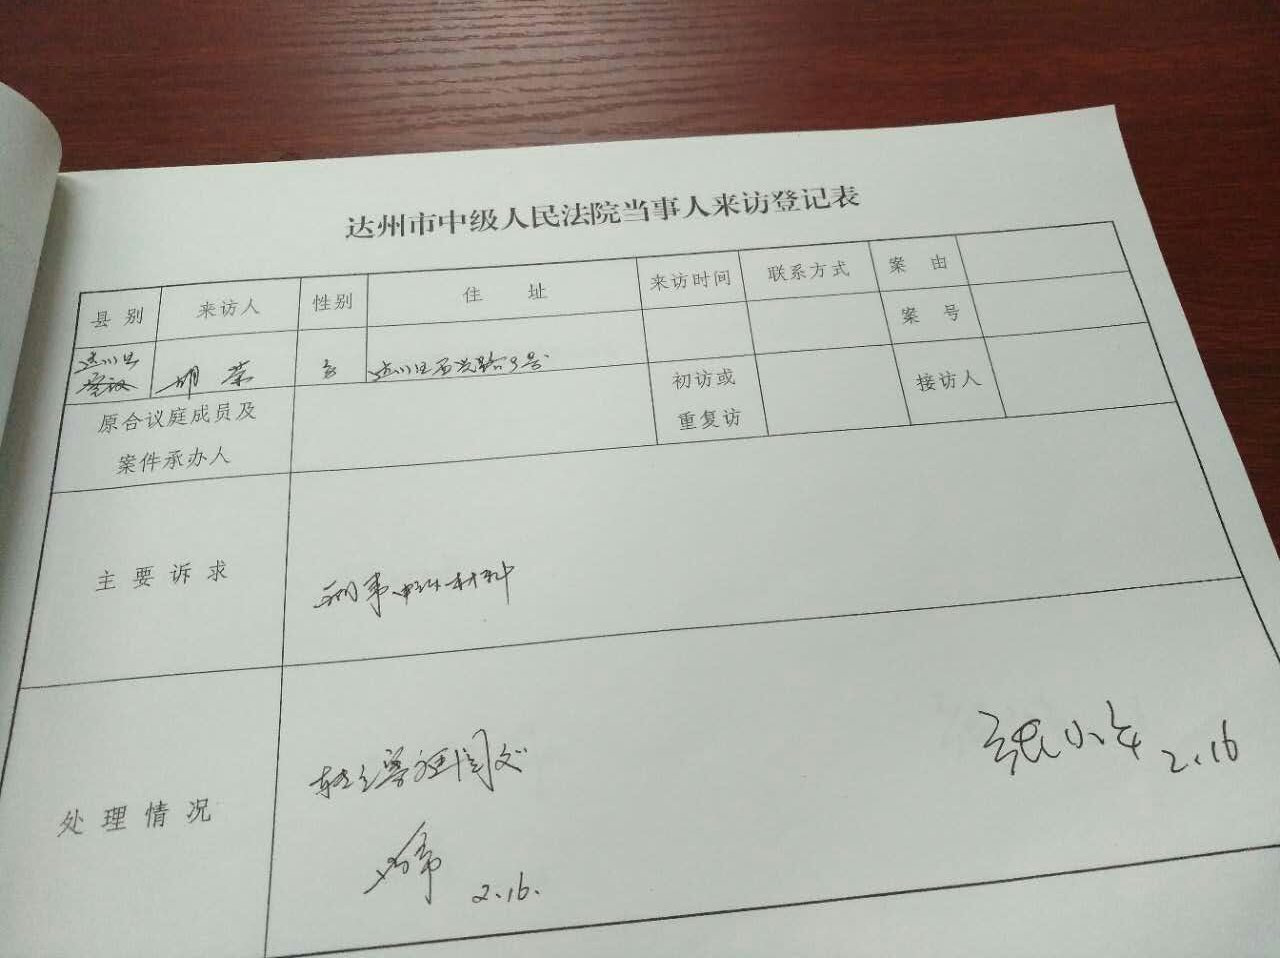 达州市中级人民法院当事人来访登记表
县别 来访人 性别 住址 来访时间 联系方式 案由
案号
达川区 胡荣 女 达川区 路3号
原合议庭成员及
案件承办人
初访或
重复访
接访人
主要诉求
刑事申诉材料
处理情况
转立案庭
2.16
2.16.